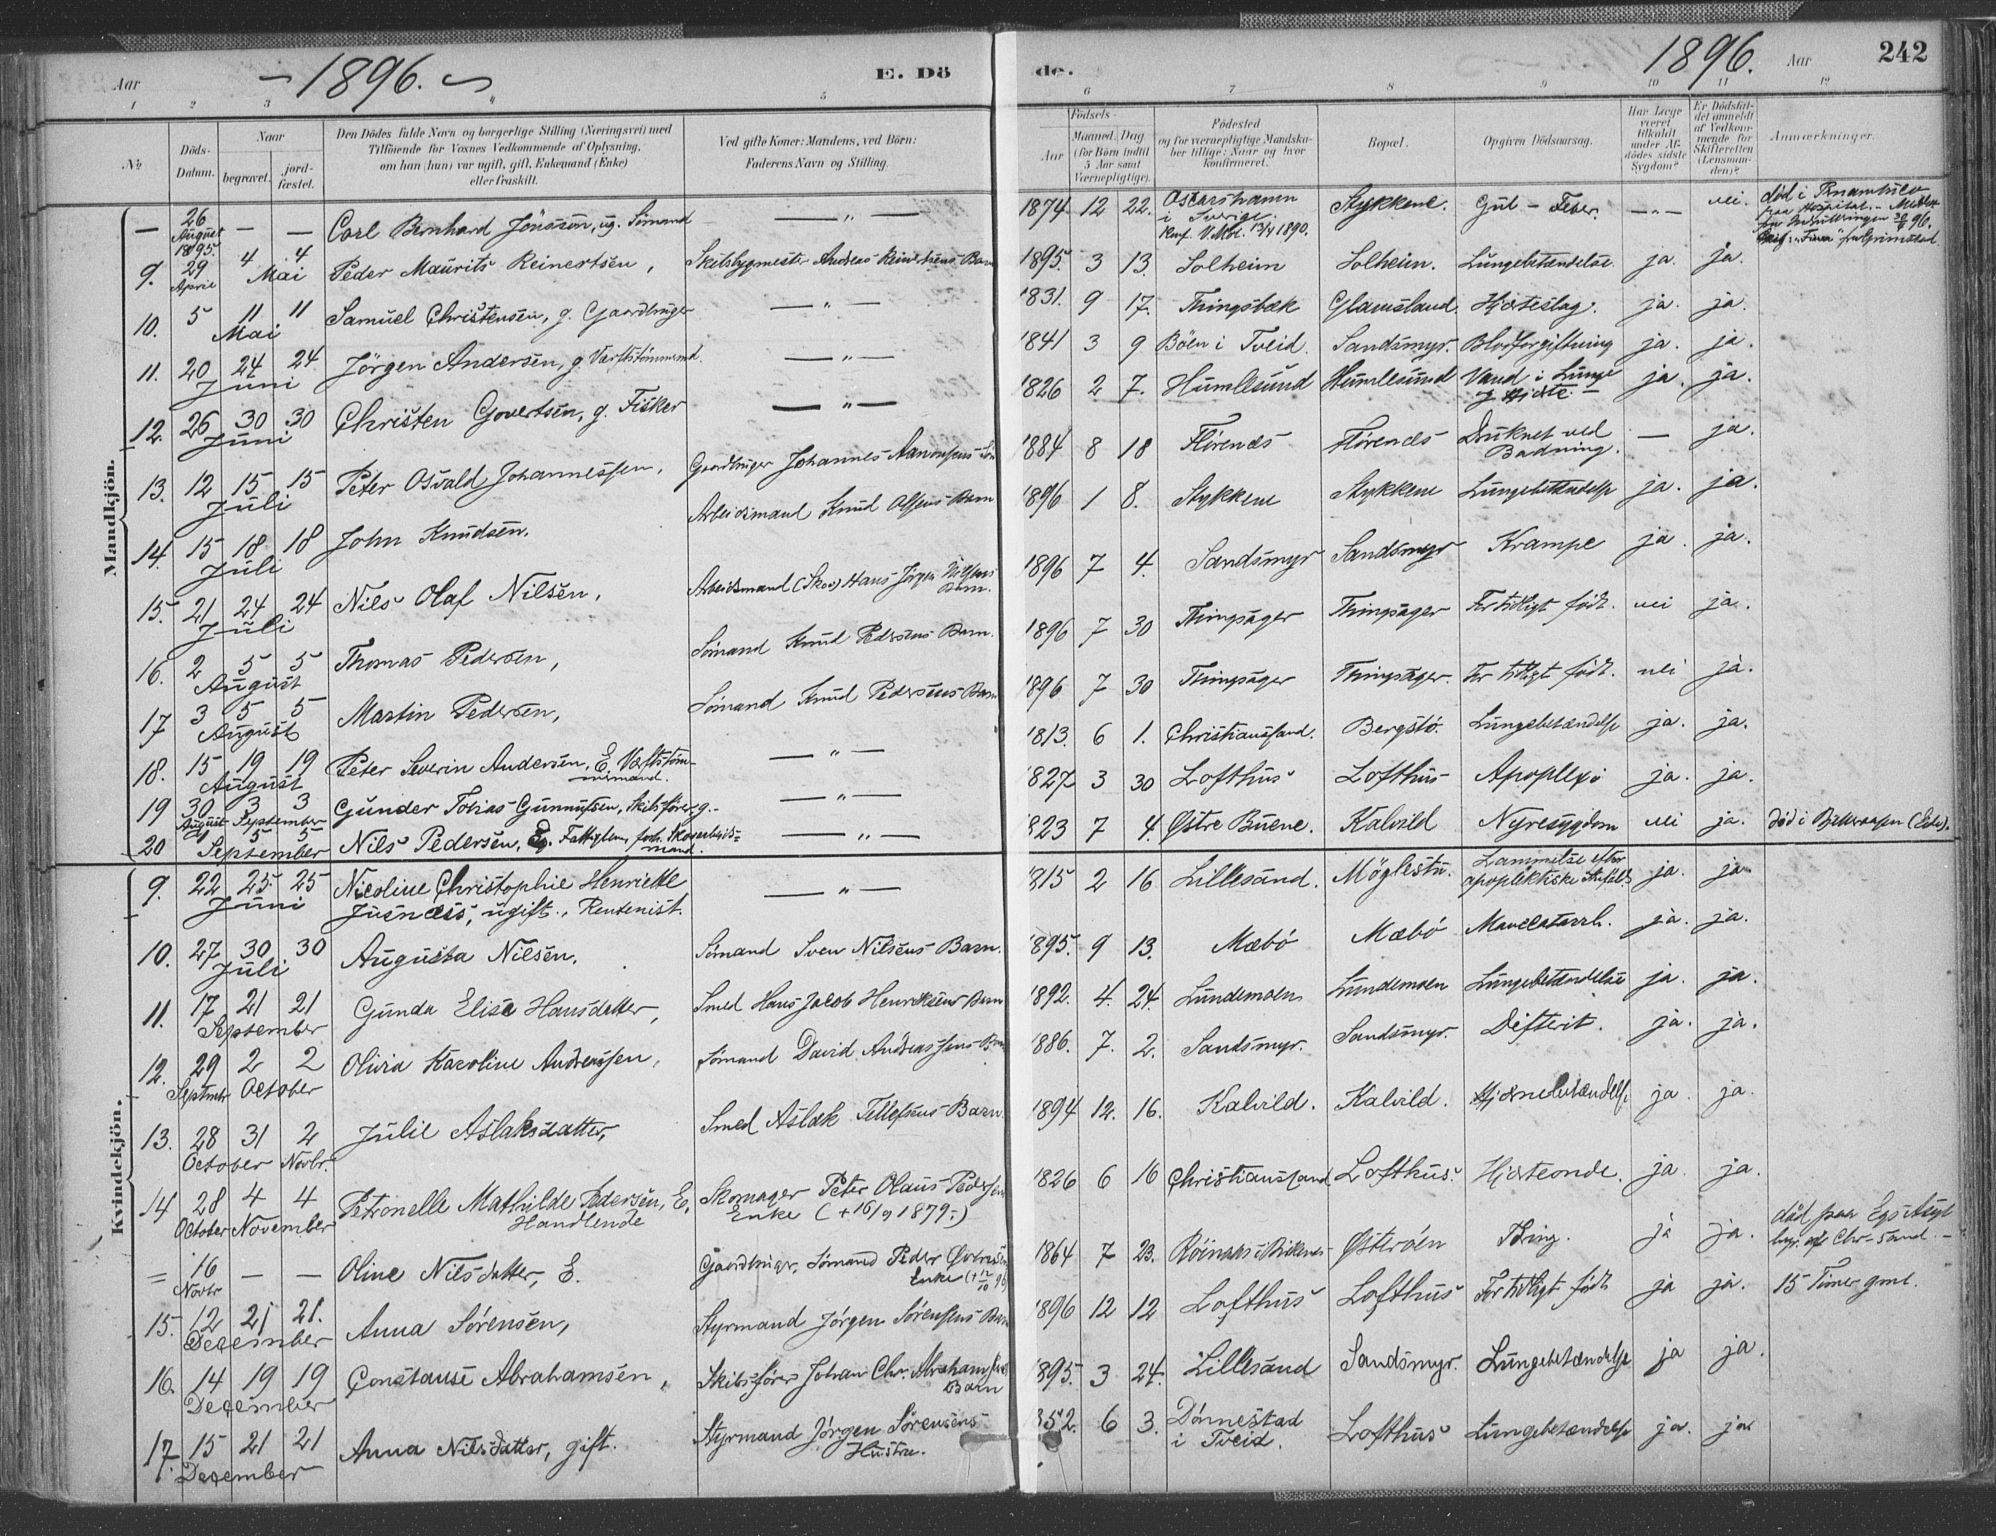 Aar ~ 1896. ~ E. Dö de. 1896. Aar 242
1 2 3 4 5 6 7 8 9 10 11 12
№
Döds-Datum.
Naar
begravet.
jord-fæstet.
Den Dödes fulde Navn og borgerlige Stilling (Næringsvei) med
Tilföiende for Voxnes Vedkommende af Oplysning,
om han (hun) var ugift, gift, Enkemand (Enke)
eller fraskilt.
Ved gifte Koner: Mandens, ved Börn:
Faderens Navn og Stilling.
Födsels-
Aar
Maaned. Dag
(for Börn indtil
5 Aar samt
Værnepligtige).
Födested
og for værnepligtige Mandska-
ber tillige: Naar og hvor
konfirmeret.
Bopæl.
Opgiven Dödsaarsag.
Har Læge
været
tilkaldt
under Af-
dödes sidste
Sygdom?
Er Dödsfal-
det anmeldt
af Vedkom-
mende for
Skifteretten
(Lensman-
den)?
Anmærkninger.
Mandkjön.
— 26 August 1895. — — Carl Bernhard Jönsson, ug. Sømand — „ — 1874 12 22. Oscarshamn i Sverige. Konf. V. Mol. 13/4 1890. Stykkene. Gul-Feber. — „ — nei. død i Hospital. fra Grimstad.
9. 29 April 4 4 Mai Peder Maurits Reinertsen, Skibsbygmester Andreas Reinertsens Barn 1895. 3 13. Solheim Solheim. Lungebetændelse. ja. ja.
10. 5 11 11 Mai Samuel Christensen, g. Gaardbruger — „ — 1831. 9 17. Thingsbæk Glamsland. Hjerteslag. ja. ja.
11. 20 24 24 Juni Jörgen Andersen, g. Værftstømmermd. — „ — 1841 3 9 Böen i Tveid. Sandsmyr. Blodforgiftning ja. ja.
12. 26 30 30 Juni Christen Govertsen, g. Fisker — „ — 1826 2 7. Humlesund Humlesund Vand i Lunge og Hjerte. — ja. ja.
13. 12 15 15 Juli Peter Osvald Johannessen, Gaardbruger Johannes Aanonsens Søn 1884 8 18 Flörenæs Flörenæs Druknet ved Badning. — ja.
14. 15 18 18 Juli John Knudsen. Arbeidsmand Knud Olsens Barn 1896 1 8. Stykkene Stykkene Lungebetændelse ja. ja.
15. 21 24 24 Juli Nils Olaf Nilsen, Arbeidsmand (Skov) Hans Jörgen Nilsens Barn. 1896 7 4. Sandsmyr Sandsmyr Krampe ja. ja.
16. 2 5 5 August Thomas Pedersen, Sømand Knud Pedersens Barn. 1896 7 30 Thingsager Thingsager For tidligt født. nei ja.
17 3 5 5 August Martin Pedersen, Sømand Knud Pedersens Barn 1896 7 30 Thingsager Thingsager. For tidligt født. nei ja.
18. 15 19 19 August Peter Severin Andersen, E. Værftstøm-mermand. — „ — 1813. 6 1. Christianssand. Bergstø. Lungebetændelse ja. ja.
19 30 August 3 3 September Gunder Tobias Gunnufsen, Skibsfører g. — „ — 1827 3 30 Lofthus Lofthus Apoplexi ja. ja.
20 5 5 September Nils Pedersen, Eg. Fattiglem, forh. Skovarbeids-mand. — „ — 823 7 4. Østre Buene. Kalvild Nyresygdom nei ja. død i
Kvindekjön.
9. 22 25 25 Juni Nicoline Christophie Henriette Jusnæss, ugift., Rentenist. — „ — 1815 2 16 Lillesand. Möglestu. Lammelse efter apoplektiske Anfald ja. ja
10. 27 30 30 Juli Augusta Nilsen. Sømand Sven Nilsens Barn. 1895. 9 13. Mæbö Mæbö Mavecatarrh. ja. ja.
11. 17 21 21 September Gunda Elise Hansdatter, Smed Hans Jacob Henriksens Barn 1892. 4. 24. Lundemoen Lundemoen Lungebetændelse ja. ja.
12. 29 Septmbr 2 2 October Olivia Karoline Andreassen, Sømand David Andreassens Barn 1886. 7. 2. Sandsmyr. Sandsmyr. Difterit. ja. ja.
13. 28 31 October 2 Novbr. Julie Aslaksdatter, Smed Aslak Tellefsens Barn 1894 12. 16. Kalvild. Kalvild. Hjernebetændelse ja ja.
14 28 October 4 4 November Petronelle Mathilde Pedersen, E. Handlende Skomager Peter Olaus Pedersens Enke (+ 16/9 1879.) 1826 6 16 Christianssand Lofthus. Hjerteonde. ja. ja.
= 16 Novbr — — Oline Nilsdatter, E. Gaardbruger, Sømand Peder Enke (+ 12/10 96) 1864 7 23. Østeröen Tæring. ja ja. død paa Egs Asyl af Chr.sand. —
15. 12 21 21. December Anna Sørensen, Styrmand Jörgen Sørensens Barn 1896 12 12 Lofthus Lofthus For tidligt født ja ja. 15 Timer gml.
16. 14 19 19 December Constanse Abrahamsen, Skibsfører Johan Chr. Abrahamsens Barn 1895. 3 24. Lillesand Sandsmyr. Lungebetændelse ja ja.
17. 15 21 21 December Anna Nilsdatter, gift. Styrmand Jörgen Sørensens Hustru. 852. 6 3. Dønnestad i Tveid. Lofthus Lungebetændelse ja. ja